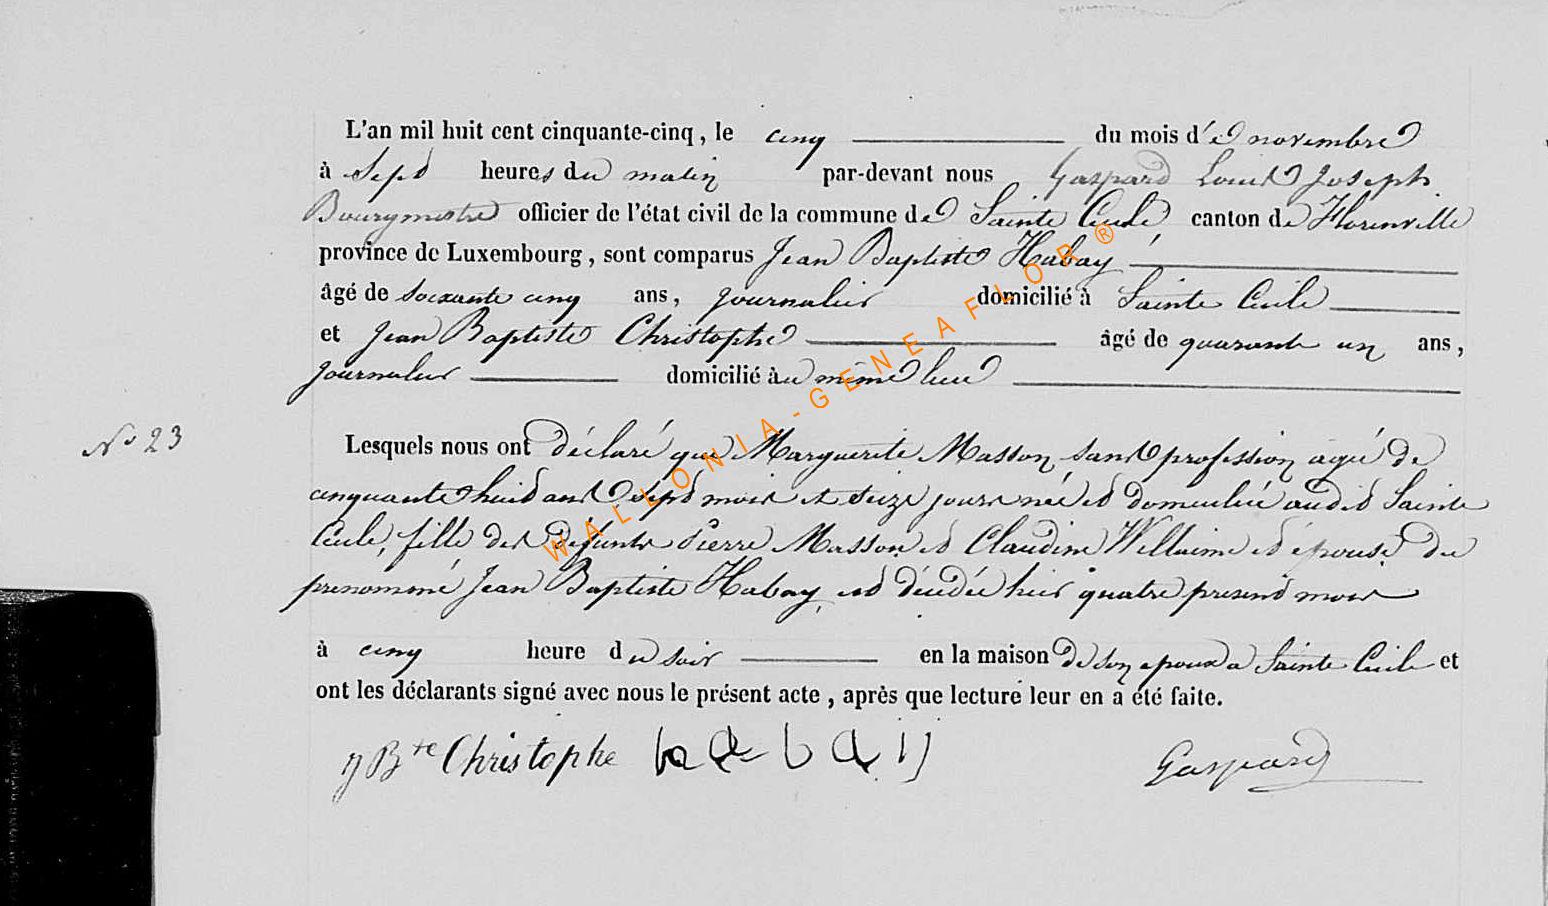 L'an mil huit cent cinquante-cinq, le cinq du mois de novembre
à Sept heures du matin par-devant nous Gaspard Louis Joseph
Bourgmestre officier de l'état civil de la commune de Sainte Cecile canton de Florenville
province de Luxembourg, sont comparus Jean Baptiste Habay
âgé de soixante cinq ans, journalier domicilié à Sainte Cecile
et Jean Baptiste Christophe âgé de quarante un ans,
journalier domicilié au même lieu
N° 23
Lesquels nous ont déclaré que Marguerite Masson sans profession agée de
cinquante huit ans sept mois et seize jours née et domiciliée audit Sainte
Cecile, fille des défunts Pierre Masson et Claudine Willaime et épouse du
prenommé Jean Baptiste Habay, est décédée hier quatre present mois
à cinq heure du soir en la maison de son epoux a Sainte Cecile et
ont les déclarants signé avec nous le présent acte, après que lecture leur en a été faite.
J Bte Christophe habaij Gaspard
WALLONIA-GENEAFLOR ®